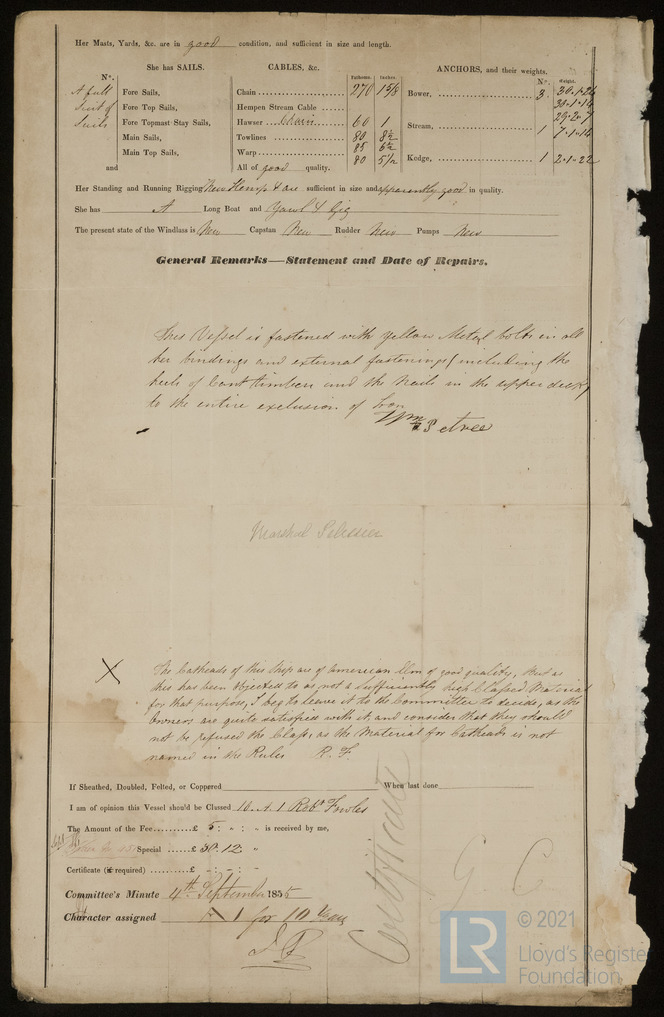 Her Masts, Yards, &c. are in good condition, and sufficient in size and length.
She has SAILS.
CABLES, &c.
ANCHORS, and their weights.
N°.
Fathoms. Inches
N°. Weight.
A full Suit of Sails
Fore Sails,
Fore Top Sails,
Fore Topmast Stay Sails,
Main Sails,
Main Top Sails,
and
Chain 270 1 5/8
Hempen Stream Cable
Hawser Chain 60 1
Towlines 80 8½
Warp 85 6½
80 5½
All of good quality.
Bower, 3 30.1.26
30.1.14
29.2.7
Stream, 1 7.1.14
Kedge, 1 2.1.22
Her Standing and Running Rigging New Hemp & are sufficient in size and apparently good in quality.
She has A Long Boat and Yawl & Gig
The present state of the Windlass is New Capstan New Rudder New Pumps New
General Remarks—Statement and Date of Repairs.
This Vessel is fastened with yellow Metal bolts in all
her bindings and external fastenings (including the
heels of Cant timbers and the Nails in the upper deck)
to the entire exclusion of Iron
Wm Petree
Marshal Pelissier
X
The Catheads of this Ship are of American Elm of good quality, But as
this has been objected to as not a sufficiently high Classed Material
for that purpose, I beg to leave it to the Committee to decide, as the
Owners are quite satisfied with it, and consider that they should
not be refused the Class, as the Material for Catheads is not
named in the Rules R. F.
If Sheathed, Doubled, Felted, or Coppered When last done
I am of opinion this Vessel should be Classed 10. A. 1 Robt Fowles
The Amount of the Fee £ 5 : „ : „ is received by me,
Special £ 30. 12: „
Certificate (if required) £
Committee's Minute 4th September 1855
Character assigned A 1 for 10 Years
Certificate
G C
© 2021
LR
Lloyd's Register
Foundation